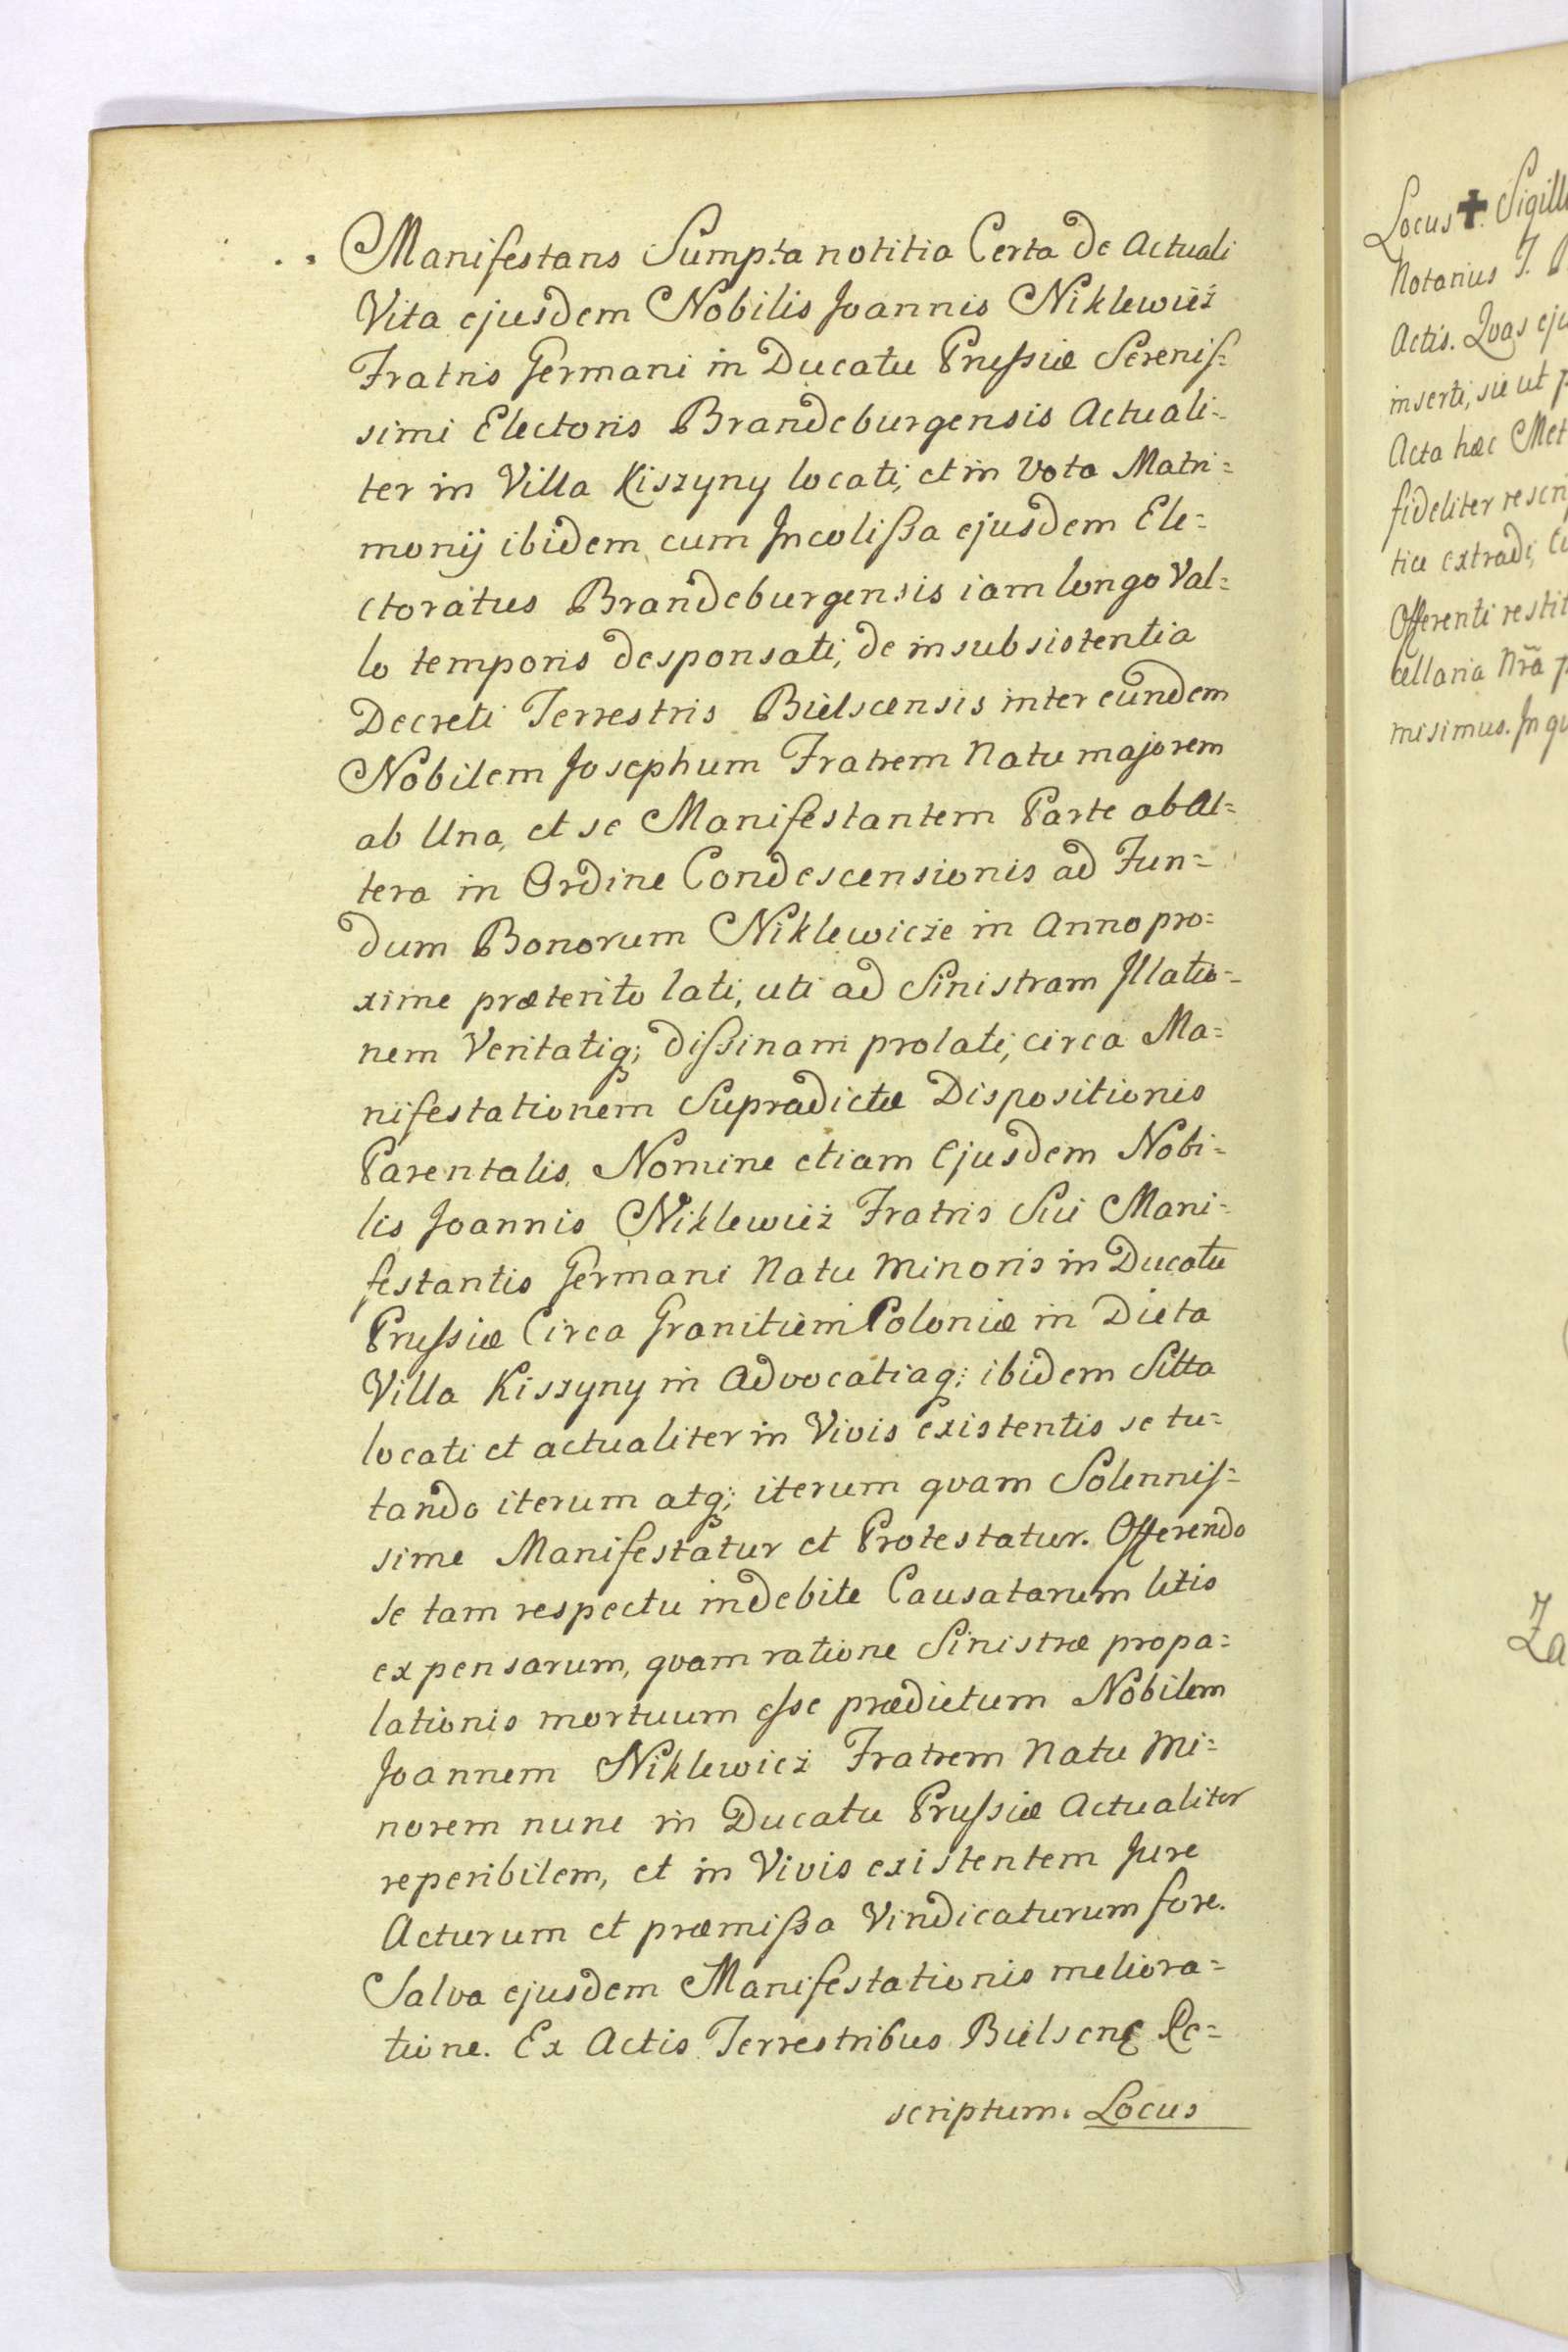 Manifestans Sumpta notitia Certa de Actuali
Vita ejusdem Nobilis Joannis Niklewicz
Fratris Germani in Ducatu Prussiæ Serenis=
simi Electoris Brandeburgensis Actuali=
ter in Villa Kiszyny locati, et in Vota Matri=
monij ibidem cum Incolißa ejusdem Ele=
ctoratus Brandeburgensis iam longo Val=
lo temporis desponsati, de insubsistentia
Decreti Terrestris Bielscensis inter eundem
Nobilem Josephum Fratrem Natu majorem
ab Una, et se Manifestantem Parte ab Al=
tera in Ordine Condescensionis ad Fun=
dum Bonorum Niklewicze in Anno pro=
xime præterito lati, uti ad Sinistram Illatio=
nem Veritatiq; dißinam prolati, circa Ma=
nifestationem Supradictæ Dispositionis
Parentalis, Nomine etiam Ejusdem Nobi=
lis Joannis Niklewicz Fratris Sui Mani=
festantis Germani Natu Minoris in Ducatu
Prussiæ Circa Granitiem Poloniæ in Dicta
Villa Kiszyny in Advocatiaq; ibidem Sitta
locati et actualiter in Vivis existentis se tu=
tando iterum atq; iterum quam Solennis=
sime Manifestatur et Protestatur. Offerendo
se tam respectu indebite Causatarum litis
expensarum, quam ratione Sinistræ propa=
lationis mortuum esse prædictum Nobilem
Joannem Niklewicz Fratrem Natu Mi=
norem nunc in Ducatu Prussiæ Actualiter
reperibilem, et in Vivis existentem Jure
Acturum et præmißa Vindicaturum fore.
Salva ejusdem Manifestationis meliora=
tione. Ex Actis Terrestribus Bielscens Re=
scriptum. Locus
Locus ✝ Sigill
Notarius T.
Actis. Quas eju
inserti, sic ut p
Acta hæc Met
fideliter rescri
tice extradi,
Offerenti restit
cellaria Nrã p
misimus. In qu
Za